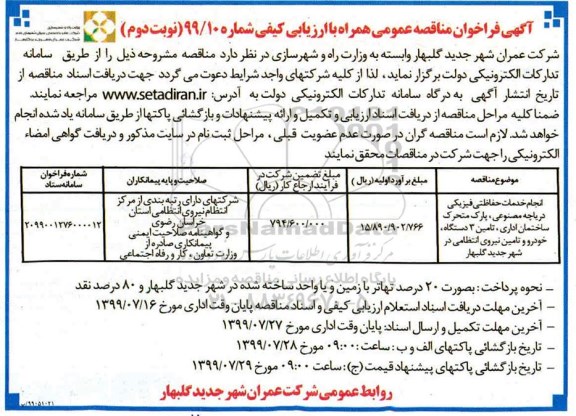 آگهی فراخوان مناقصه عمومی همراه با ارزیابی کیفی شماره ۹۹/۱۰ (نوبت دوم)
شرکت عمران شهر جدید گلبهار وابسته به وزارت راه و شهرسازی در نظر دارد مناقصه مشروحه ذیل را از طریق سامانه
تدارکات الکترونیکی دولت برگزار نماید، لذا از کلیه شرکتهای واجد شرایط دعوت می گردد جهت دریافت اسناد مناقصه از
تاریخ انتشار آگهی به درگاه سامانه تدارکات الکترونیکی دولت به آدرس: www.setadiran.ir مراجعه نمایند.
ضمنا کلیه مراحل مناقصه از دریافت اسناد ارزیابی و تکمیل و ارائه پیشنهادات و بازگشائی پاکتها از طریق سامانه یاد شده انجام
خواهد شد. لازم است مناقصه گران در صورت عدم عضویت قبلی، مراحل ثبت نام در سایت مذکور و دریافت گواهی امضاء
الکترونیکی را جهت شرکت در مناقصات محقق نمایند
موضوع مناقصه
مبلغ برآورد اولیه (ریال)
مبلغ تضمین شرکت در فرآیند ارجاع کار (ریال)
صلاحیت و پایه پیمانکاران
شماره فراخوان سامانه ستاد
انجام خدمات حفاظتی فیزیکی
دریاچه مصنوعی، پارک متحرک
ساختمان اداری، تامین ۳ دستگاه
خودرو و تامین نیروی انتظامی در
شهر جدید گلبهار
۱۵/۸۹۰/۹۰۲/۷۶۶
۷۹۴/۶۰۰/۰۰۰
شرکتهای دارای رتبه بندی از مرکز
انتظام نیروی انتظامی استان
خراسان رضوی
و گواهینامه صلاحیت ایمنی
پیمانکاری صادره از
وزارت تعاون، کار و رفاه اجتماعی
۲۰۹۹۰۰۱۲۷۶۰۰۰۰۱۲
- نحوه پرداخت: بصورت ۲۰ درصد تهاتر با زمین و یا واحد ساخته شده در شهر جدید گلبهار و ۸۰ درصد نقد
- آخرین مهلت دریافت اسناد استعلام ارزیابی کیفی و اسناد مناقصه پایان وقت اداری مورخ ۱۳۹۹/۰۷/۱۶
- آخرین مهلت تکمیل و ارسال اسناد: پایان وقت اداری مورخ ۱۳۹۹/۰۷/۲۷
- تاریخ بازگشائی پاکتهای الف و ب: ساعت: ۰۹:۰۰ مورخ ۱۳۹۹/۰۷/۲۸
- تاریخ بازگشائی پاکتهای پیشنهاد قیمت (ج): ساعت ۰۹:۰۰ مورخ ۱۳۹۹/۰۷/۲۹
روابط عمومی شرکت عمران شهر جدید گلبهار